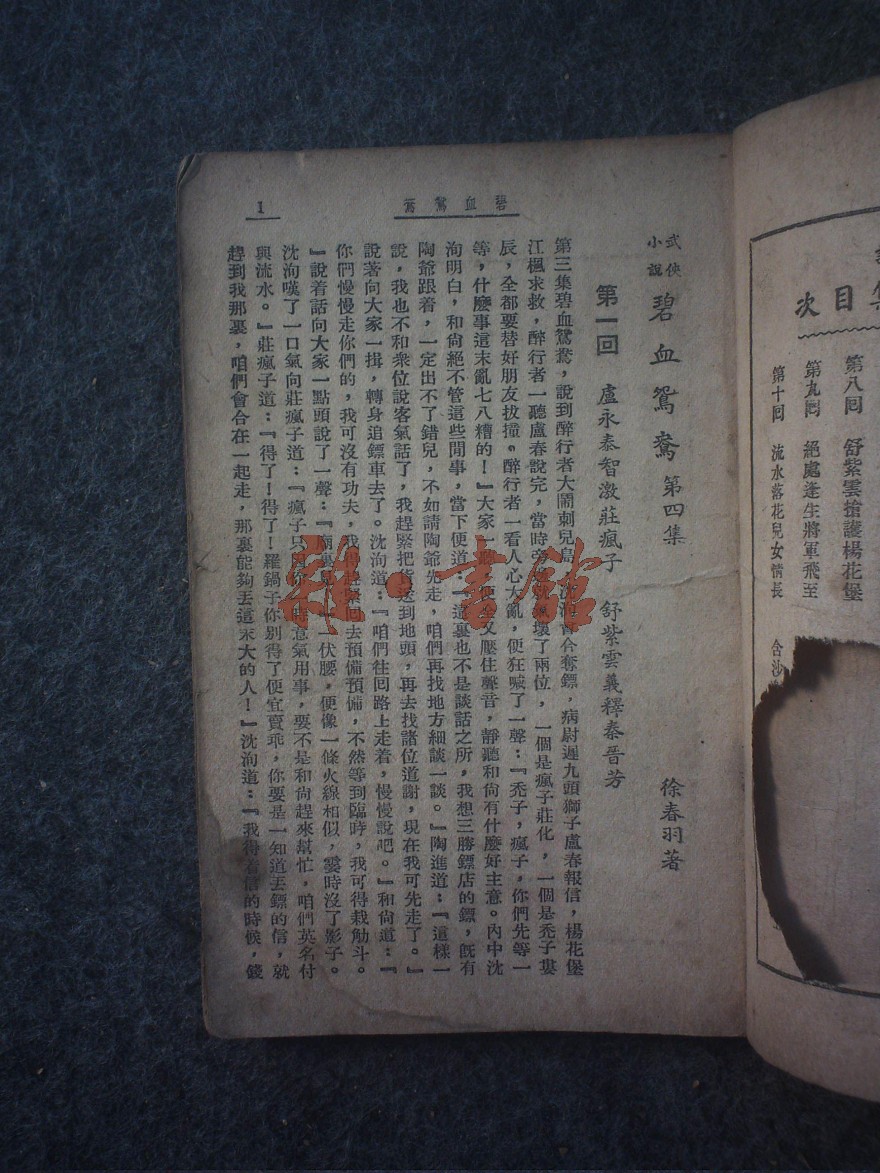 集
目次
第八回　舒紫雲搶護楊花堡
第九回　絕處逢生將軍飛至
第十回　流水落花兒女情長　含沙
碧血鴛鴦
1
武俠小說　碧血鴛鴦　第四集
徐春羽著
第一回　盧永泰智激莊瘋子　舒紫雲義釋秦晉芳
第三集碧血鴛鴦，說到醉行者大鬧刺兒島，沈洵奪鏢，病尉遲九頭獅子盧春報信，楊花堡
江楓求救，醉行者一聽盧春說完，當時壞了兩位，一個是瘋子莊化，一個是禿子婁
辰，全都要替好朋友拔撞。醉行者一看人心大亂，便狂喊了一聲：『禿子，瘋子，你們先等一
等，什麼事這末亂七八糟的！』大家一聽，便又壓住聲音，靜聽和尙有什麼好主意。內中沈
洵明白，和尙絕不管這些閒事，當下便道：『這裏也不是談話之所，我想三勝鏢店的鏢，旣有
陶爺跟着，一定出不了錯兒，不如請陶爺先走，咱們再找地方細談一談。』陶進道：『這樣一
說，我也不和衆位說客氣話了，我趕緊把貨送到地頭，再去找諸位道謝，現在我可先走了。』
說著向大家一揖，轉身追鏢車去了。沈洵道：『咱們往回路上走着，慢慢說吧。』和尙道：『
你們慢慢走你們的，我可沒有功夫，我得趕緊回去預備預備，不然等到臨時，我可得栽觔斗。
』說着話向大家一點頭說了一聲：『廟裏見。』一伏腰，便像一條火線相似，霎時沒了影子。
沈洵嘆了一口氣向莊瘋子道：『瘋子只因你一時意氣用事，要不是和尙趕來幫忙，咱們英名付
與流水。』莊瘋子道：『得了！得了！羅鍋子你別得了便宜賣乖，你要是一知道丟鏢的信，就
趕到我那裏，咱們會合在一起走，那裏能夠丟這末大的人！』沈洵道：『我得着信的時候，錢
雜·書館